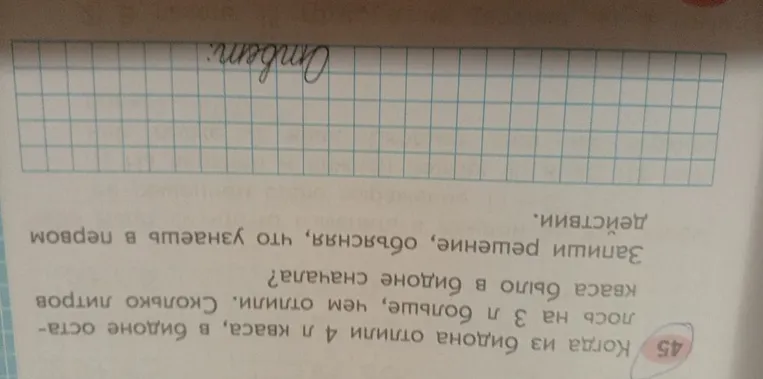 45 Когда из бидона отлили 4 л кваса, в бидоне оста-
лось на 3 л больше, чем отлили. Сколько литров
кваса было в бидоне сначала?
Запиши решение, объясняя, что узнаешь в первом
действии.
Ответ: